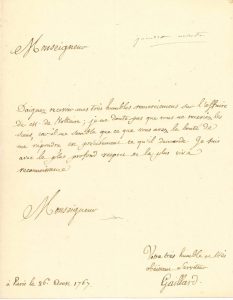 Monseigneur
Daignez recevoir mes très humbles remerciemens sur l'affaire
de M. de ; je ne doute pas que vous ne receviez les
siens, car il me semble que ce que vous avez la bonté de
me mander est précisement ce qu'il demande. Je suis
avec le plus profond respect et la plus vive
reconnoissance
Monseigneur
Votre très humble et très
obéissant serviteur
Gaillard.
à Paris le 26 1767